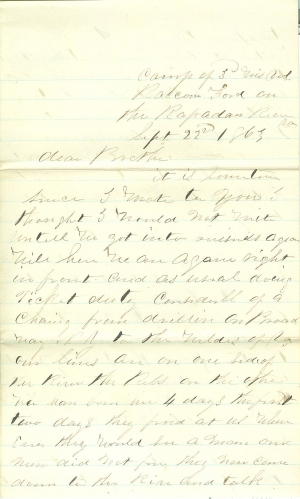 Camp of 3d Wis Vol
Racoon Ford on
the Rapadan River
Va
Sept 22d 1863
dear Brother
it is sometime
since I wrote to you I
thought I would not write
untill we got into business again
Well here we are again right
in front and as usual doing
Picket duty Considerable of a
Change from on Broad
way N Y to the
our lines are on one side of
the River the Rebs on the other
We have been here 4 days the first
two days they fired at us when
Ever they would see a man and
now did not fire they now come
down to the River and talk